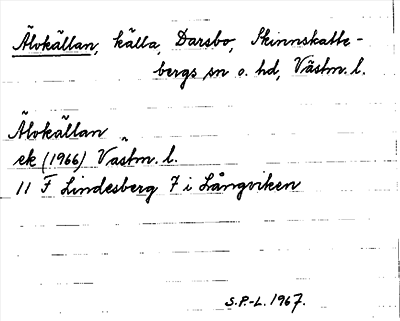 Älvkällan, källa, Darsbo, Skinnskatte-
bergs sn o. hd, Västm. l.
Älvkällan
ek (1966) Västm. l.
11 F Lindesberg 7 i Långviken
S.P.-L. 1967.